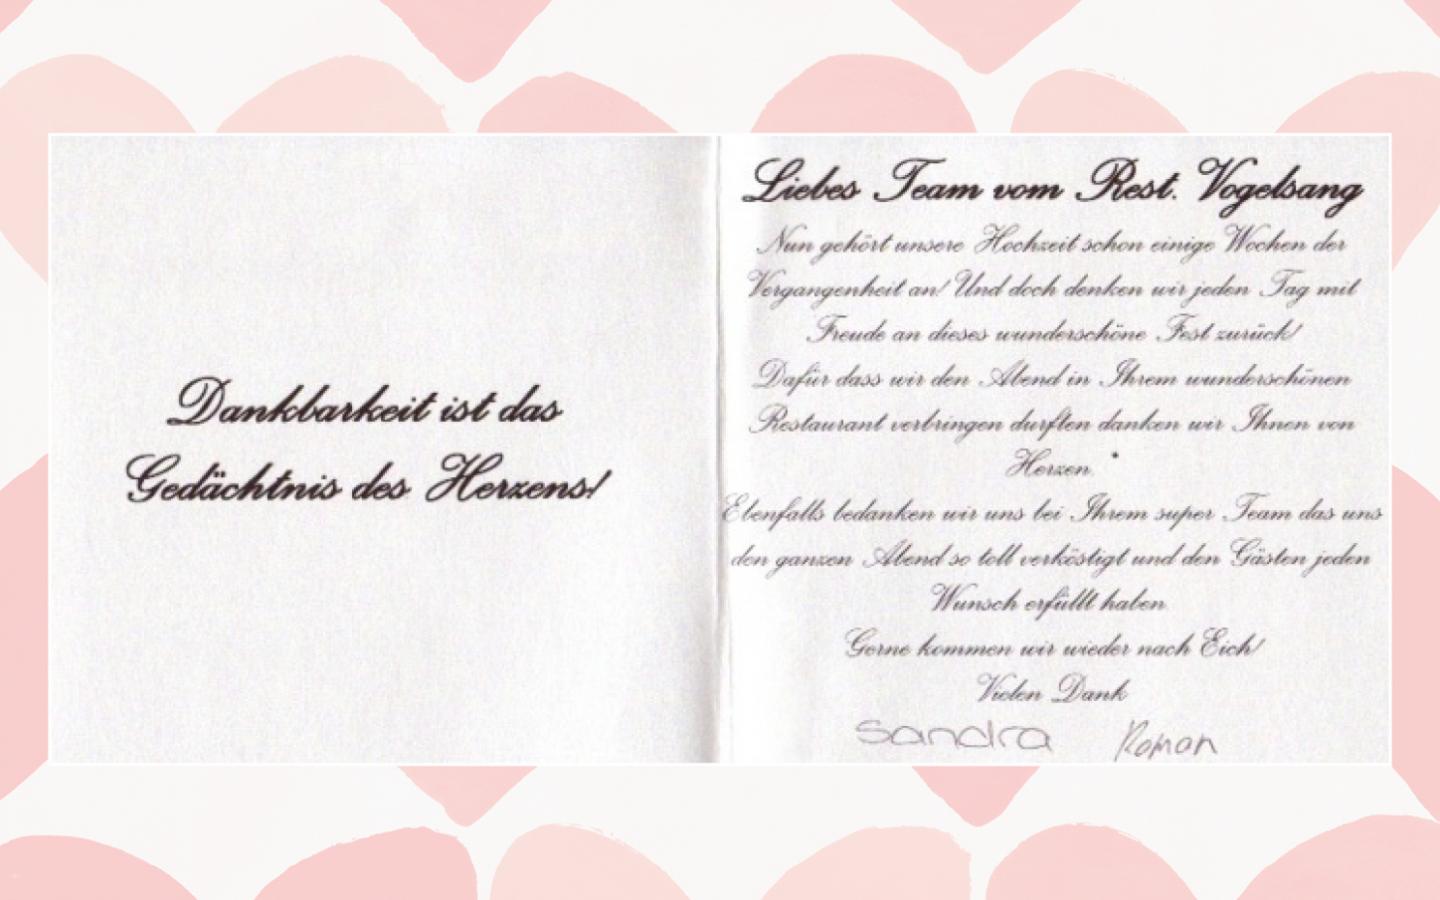 Dankbarkeit ist das
Gedächtnis des Herzens!
Liebes Team vom Rest. Vogelsang
Nun gehört unsere Hochzeit schon einige Wochen der
Vergangenheit an! Und doch denken wir jeden Tag mit
Freude an dieses wunderschöne Fest zurück!
Dafür dass wir den Abend in Ihrem wunderschönen
Restaurant verbringen durften danken wir Ihnen von
Herzen.
Ebenfalls bedanken wir uns bei Ihrem super Team das uns
den ganzen Abend so toll verköstigt und den Gästen jeden
Wunsch erfüllt haben.
Gerne kommen wir wieder nach Eich!
Vielen Dank
Sandra Roman